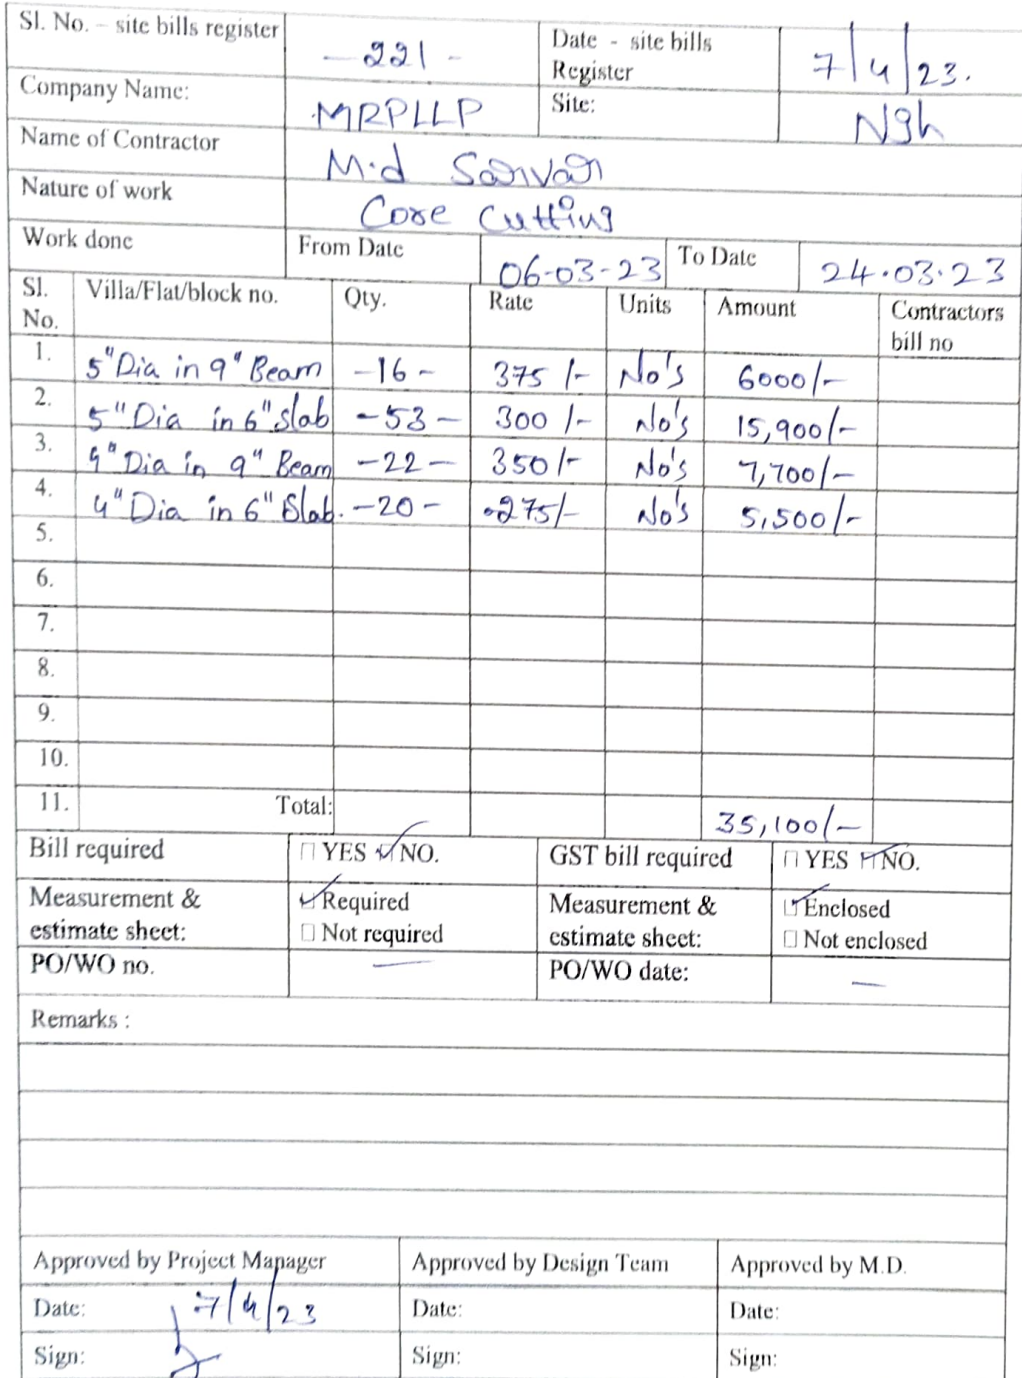 Sl. No. – site bills register -221- Date - site bills Register 7/4/23.
Company Name: MRPLLP Site: Ngh
Name of Contractor M.d Sarvar
Nature of work Core Cutting
Work done From Date 06-03-23 To Date 24.03.23
Sl. No. Villa/Flat/block no. Qty. Rate Units Amount Contractors bill no
1. 5" Dia in 9" Beam -16- 375/- No's 6000/-
2. 5" Dia in 6" slab -53- 300/- No's 15,900/-
3. 4" Dia in 9" Beam -22- 350/- No's 7,700/-
4. 4" Dia in 6" Slab. -20- 275/- No's 5,500/-
5.
6.
7.
8.
9.
10.
11. Total: 35,100/-
Bill required □ YES ☑ NO. GST bill required □ YES ☑ NO.
Measurement & estimate sheet: ☑ Required □ Not required Measurement & estimate sheet: ☑ Enclosed □ Not enclosed
PO/WO no. — PO/WO date: —
Remarks :
Approved by Project Manager Approved by Design Team Approved by M.D.
Date: 7/4/23 Date: Date:
Sign: Sign: Sign: